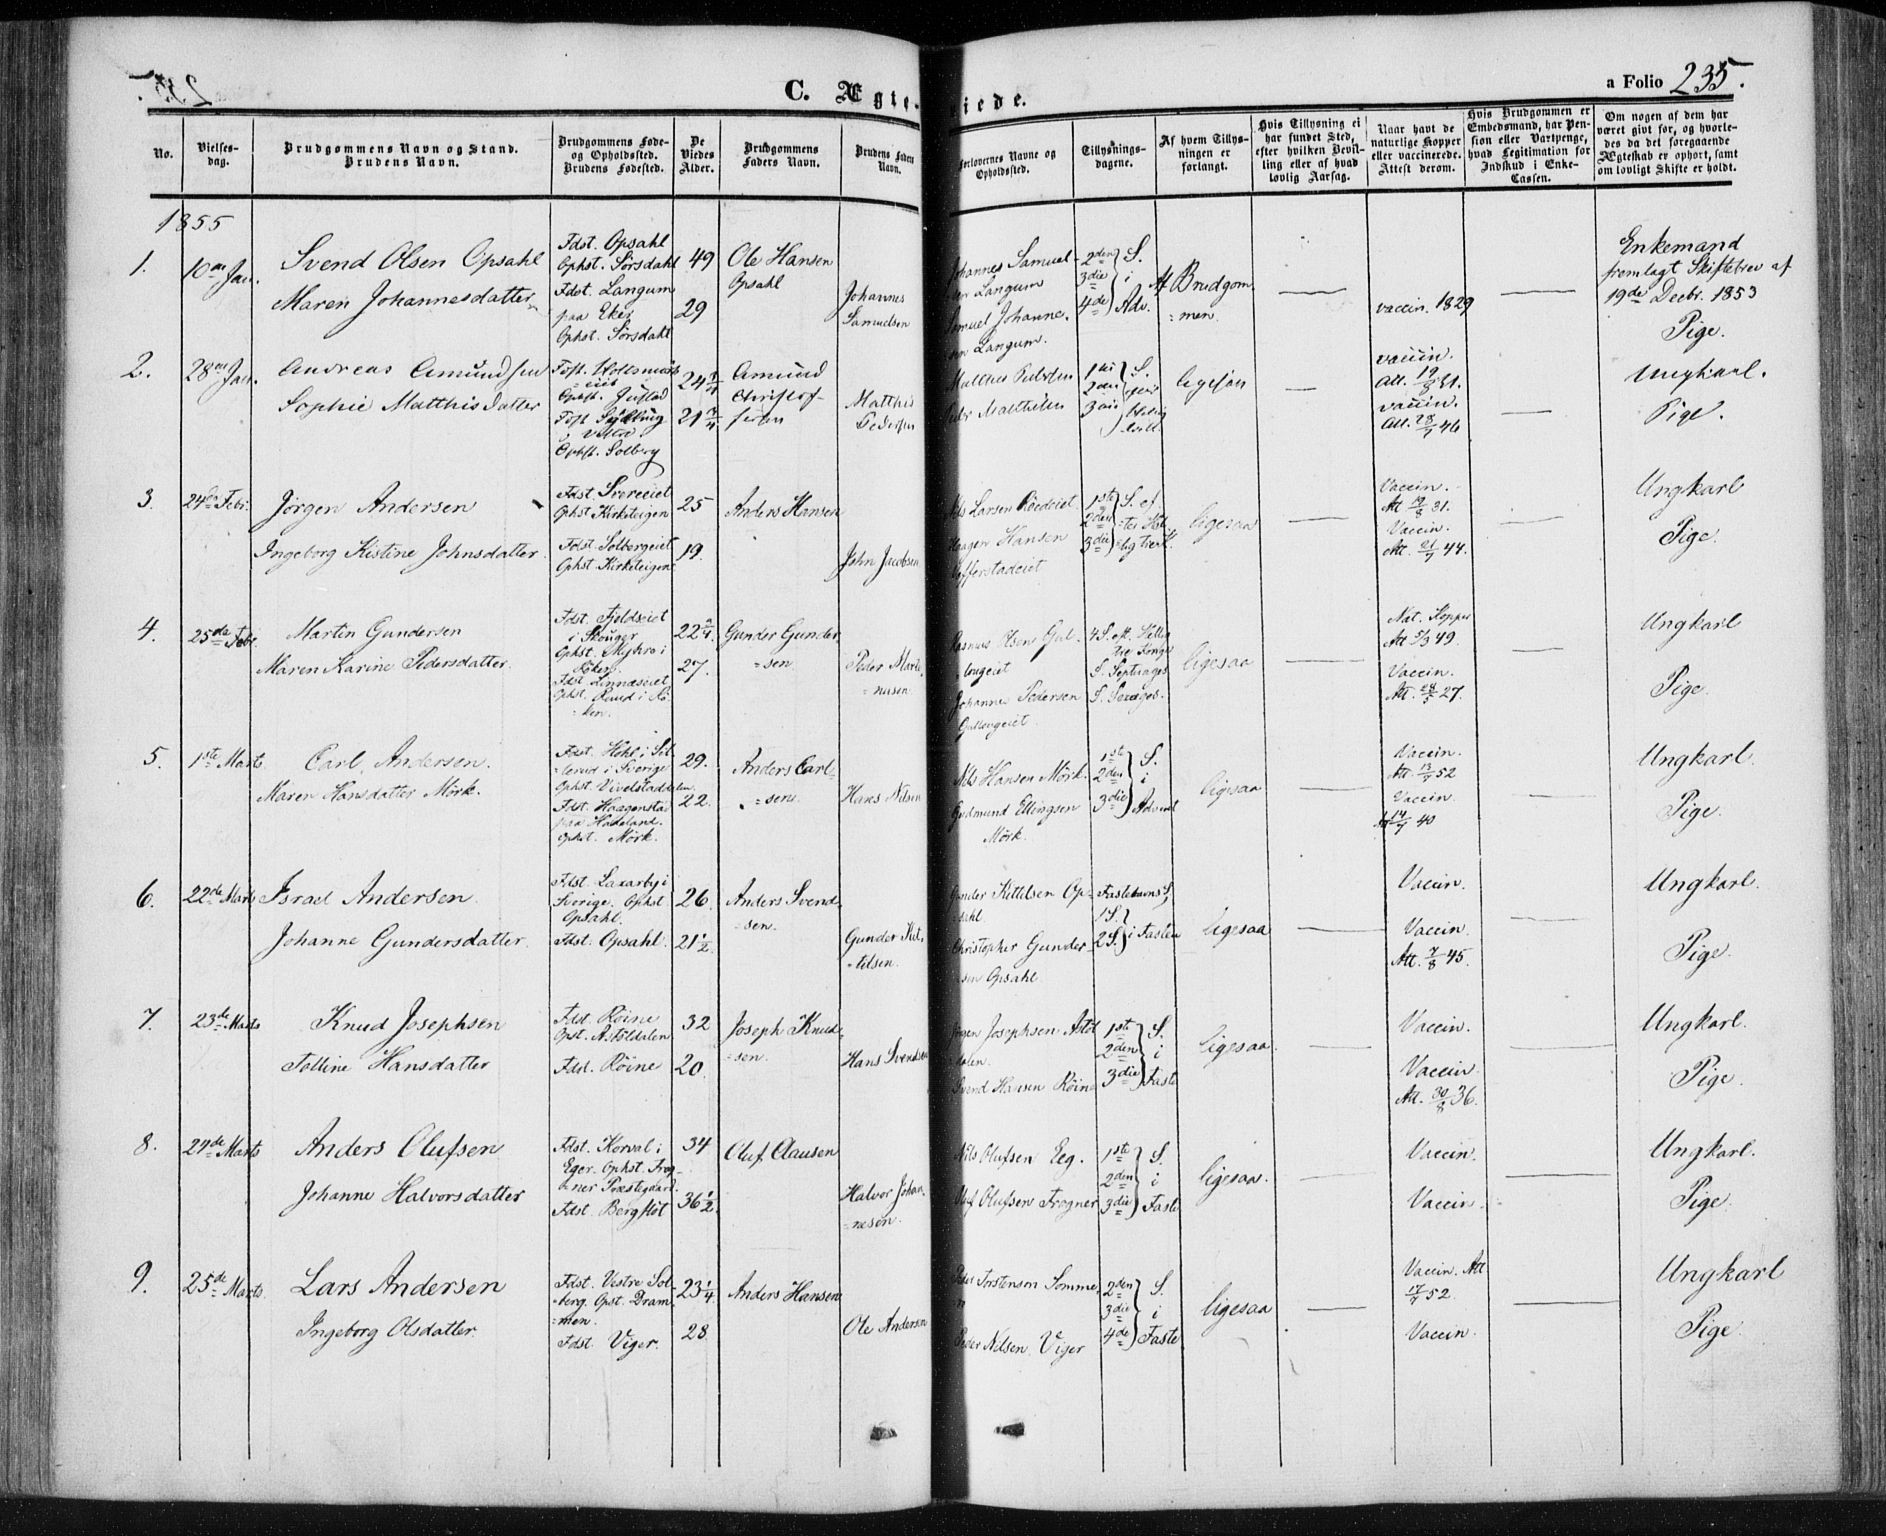 C. Ægteviede.
a Folio 235.
No.
Vielses-
dag.
Brudgommens Navn og Stand.
Brudens Navn.
Brudgommens Føde-
og Opholdssted.
Brudens Fødested.
De
Viedes
Alder.
Brudgommens
Faders Navn.
Brudens Faders
Navn.
Forlovernes Navne og
Opholdssted.
Tillysnings-
dagene.
Af hvem Tillys-
ningen er
forlangt.
Hvis Tillysning ei
har fundet Sted,
efter hvilken Bevil-
ling eller af hvad
lovlig Aarsag.
Naar havt de
naturlige Kopper
eller vaccinerede.
Attest derom.
Hvis Brudgommen er
Embedsmand, har Pen-
sion eller Vartpenge,
hvad Legitimation for
Indskud i Enke-
Cassen.
Om nogen af dem har
været givt for, og hvorle-
des da det foregaaende
Ægteskab er ophørt, samt
om lovligt Skifte er holdt.
1855
1.
10de Jan.
Svend Olsen Opsahl
Maren Johannesdatter
Fdst. Opsahl
Ophst. Sørsdahl
Fdst. Langum
paa Eker
Ophst. Sørsdahl
49
29
Ole Hansen
Opsahl
Johannes
Samuelsen
Johannes Samuel-
sen Langum
Samuel Johanne-
sen Langum.
2den
3die
4de
S.
i
Adv.
Af Brudgom
=men.
vaccin. 1829
Enkemand
fremlagt Skiftebrev af
19de Decbr. 1853
Pige.
2.
28de Jan.
Andreas Amundsen
Sophie Matthisdatter
Ophst. Solberg
24 1/4
21 3/4
Amund
Christof-
fersen
Matthis
Pedersen
1ste
2den
3die
S.
ligesaa
vaccin.
Att. 19/8 31.
vaccin.
Att. 28/7 46
Ungkarl.
Pige.
3.
24de Febr.
Jørgen Andersen
Ingeborg Kistine Johnsdatter.
Fdst. Svereeiet
Ophst. Kirketeigen
Fdst. Solbergeiet
Ophst. Kirketeigen
25
19.
Anders Hansen
John Jacobsen
Nils Larsen Røedeiet
Haagen Hansen
1ste
2den
3die
S. ef-
ligesaa
Vaccin.
Att 19/8 31.
Vaccin.
Att. 21/7 44.
Ungkarl
Pige.
4.
25de Febr
Martin Gundersen
Maren Karine Pedersdatter.
Fdst. Fjeldseiet
i Skouger
Ophst. Myhre i
Røken
Fdst. Linnæseiet
Ophst. Ruud i Rø-
ken.
22 2/4.
27.
Gunder Gunder
=sen.
Peder Marti-
nusen.
4 S. eft. Hellig
tre Konge
S. Septuages
S. Sexages.
Johannes Pedersen
Gullaugeiet.
ligesaa
Nat. Kopper
Att 5/3 49.
Vaccin.
Att. 28/5 27.
Ungkarl
Pige.
5.
1ste Marts
Carl Andersen.
Maren Hansdatter Mörk.
Ophst. Vivelstaddalen
Fdst. Haagenstad
paa Hadeland.
Ophst. Mörk.
29.
22.
Anders Carl-
=sen.
Hans Nilsen
Nils Hansen Mörk.
Gudmund Ellingsen
Mörk.
1ste
2den
3die
S.
i
Advent
ligesaa
Vaccin.
Att. 13/7 52
Vaccin.
Att 14/7 40
Ungkarl.
Pige.
6.
22de Marts
Israel Andersen.
Johanne Gundersdatter.
Fdst. Laxarby i
Sverige. Ophst
Opsahl.
Fdst. Opsahl.
26.
21 1/2
Anders Svend-
=sen.
Gunder Kit-
=tilsen.
Gunder Kittilsen Op-
=sahl
Christopher Gunder-
=sen Opsahl
Fastelavns S,
1 S.
2 S.
i Fasten
ligesaa
Vaccin.
Vaccin.
Att. 7/8 45.
Ungkarl.
Pige.
7.
23de Marts
Knud Josephsen
Tolline Hansdatter
Fdst. Röine
Opst. Astöldalen
Fdst. Röine
32
20.
Joseph Knud-
=sen.
Hans Svendsen
Jørgen Josephsen Astöl
=dalen.
Svend Hansen Röine
1ste
2den
3die
S.
i
Faste
ligesaa.
Vaccin.
Vaccin.
Att. 30/8 36.
Ungkarl.
Pige.
8.
24de Marts
Anders Olufsen
Johanne Halvorsdatter
Fdst. Korval i
Eger. Ophst. Frog-
=ner Præstegaard.
Fdst. Bergflöt
34
36 1/2.
Oluf Clausen
Halvor Johan-
=nesen.
Nils Olufsen Eeg.
Oluf Olufsen Frogner
1ste
2den
3die
S.
i
Faste
ligesaa.
Vaccin.
Vaccin.
Ungkarl.
Pige.
9.
25de Marts
Lars Andersen
Ingeborg Olsdatter.
Fdst. Vestre Sol-
=berg. Opst. Dram-
=men.
Fdst. Viger.
23 1/4
28.
Anders Hansen
Ole Andersen
Peder Torstensen Somme-
n
Peder Nilsen Viger
2den
3die
4de
S.
i
Faste
ligesaa
Vaccin. Att
17/7 52.
Vaccin.
Ungkarl
Pige.